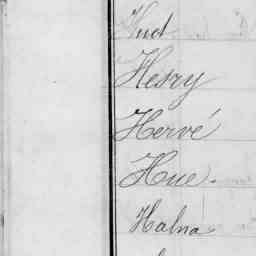 Huet
Hesry
Hervé
Hue.
Halna